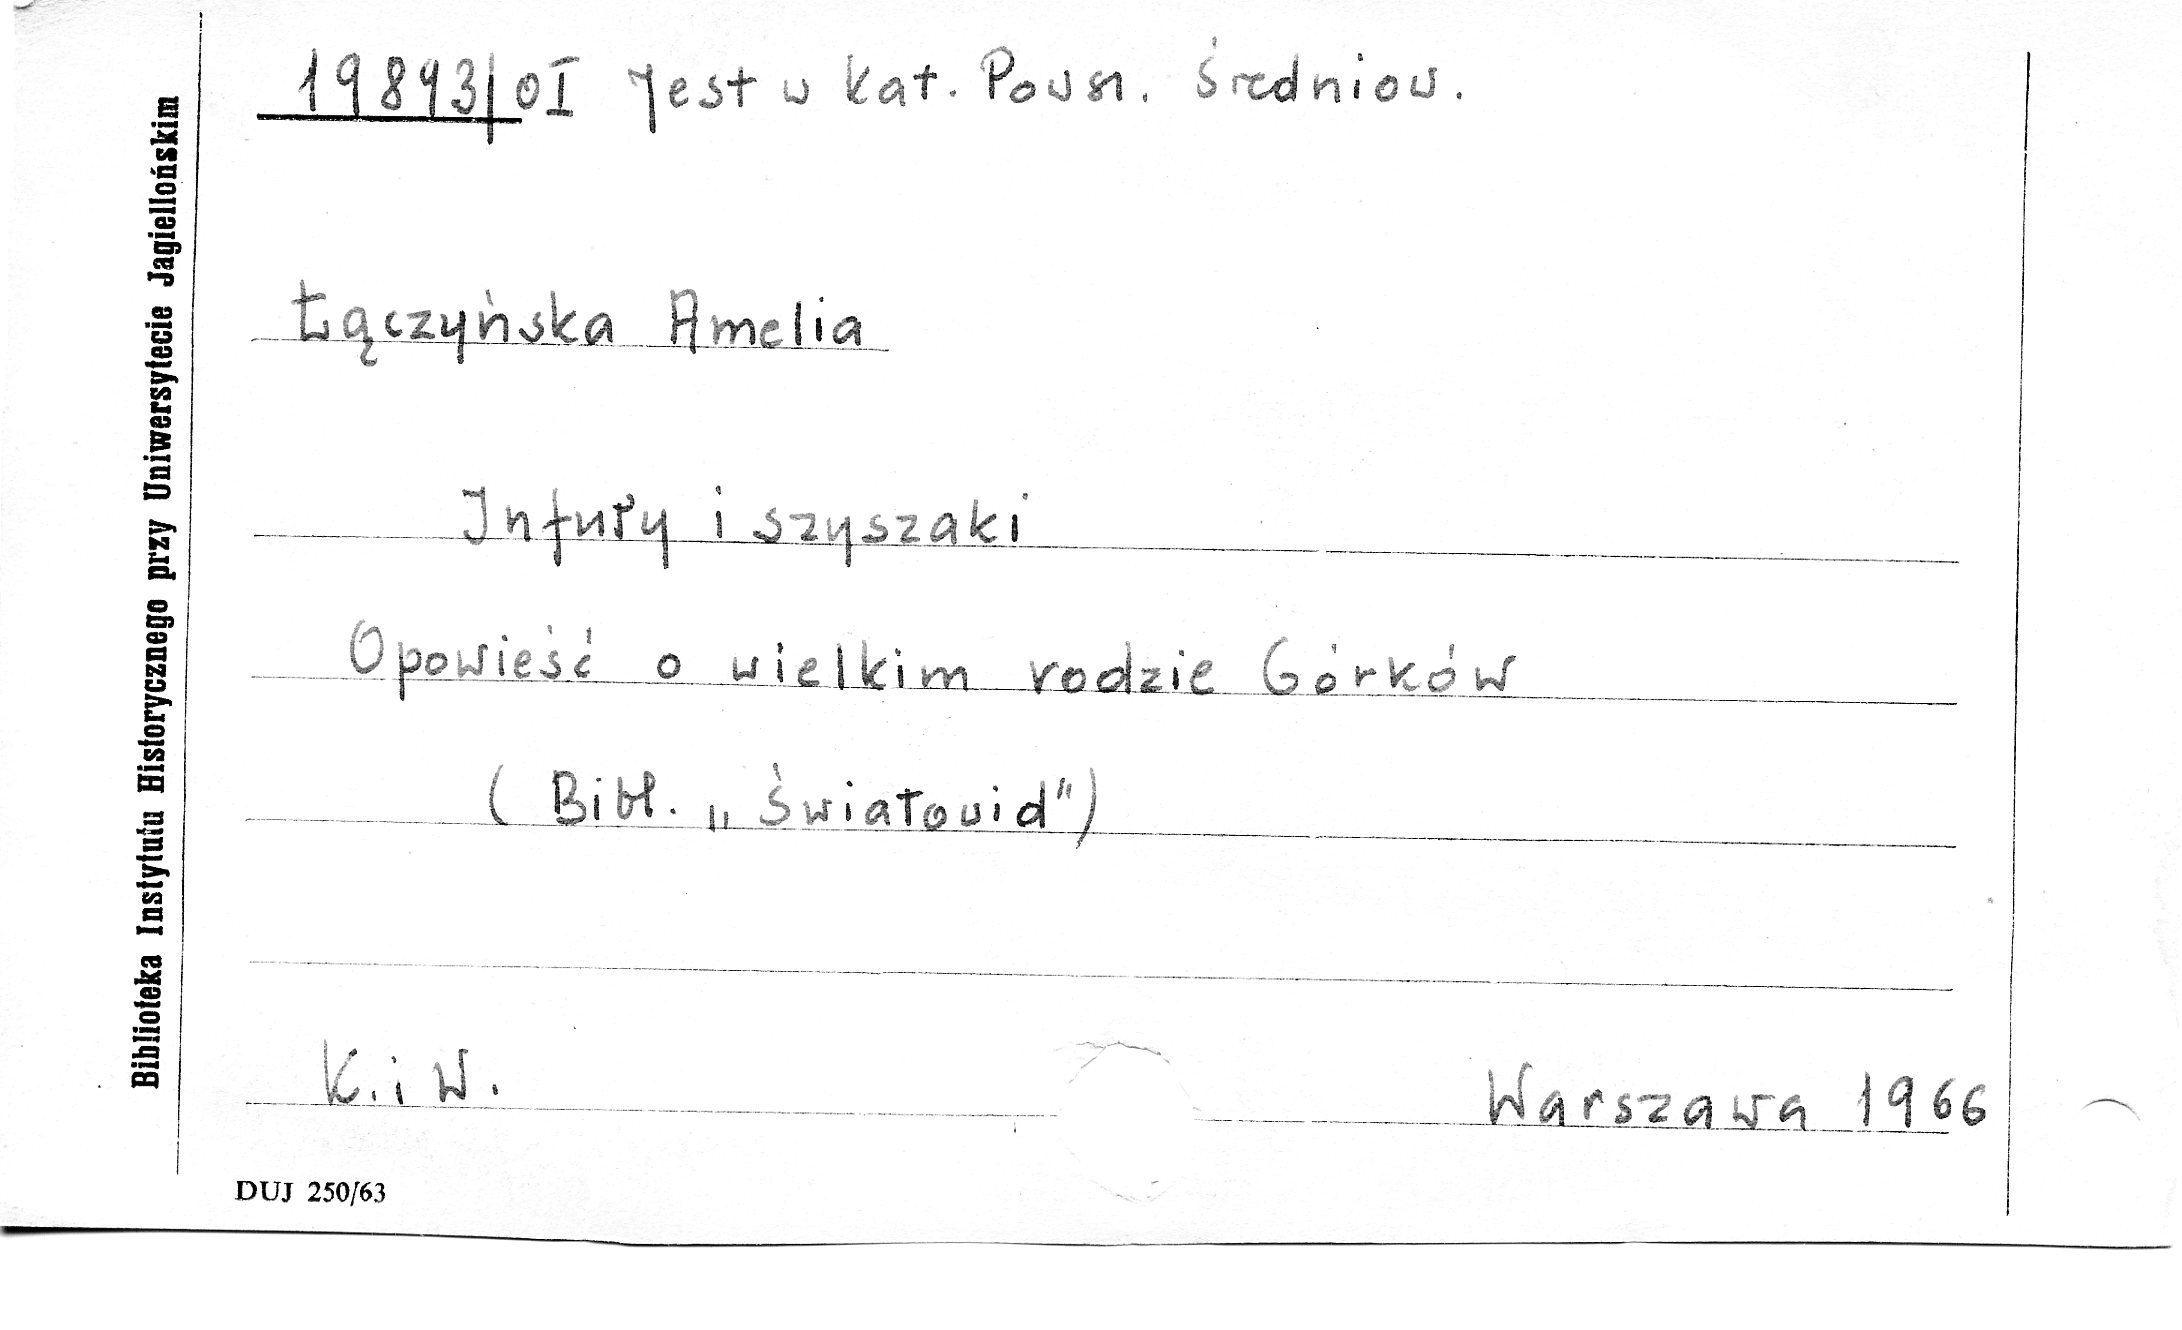 19893/OI Jest w kat. Powsz. Średniow.
Łączyńska Amelia
Infuły i szyszaki
Opowieść o wielkim rodzie Górków
( Bibl. „Światowid")
K. i W.
Warszawa 1966
DUJ 250/63
Biblioteka Instytutu Historycznego przy Uniwersytecie Jagiellońskim